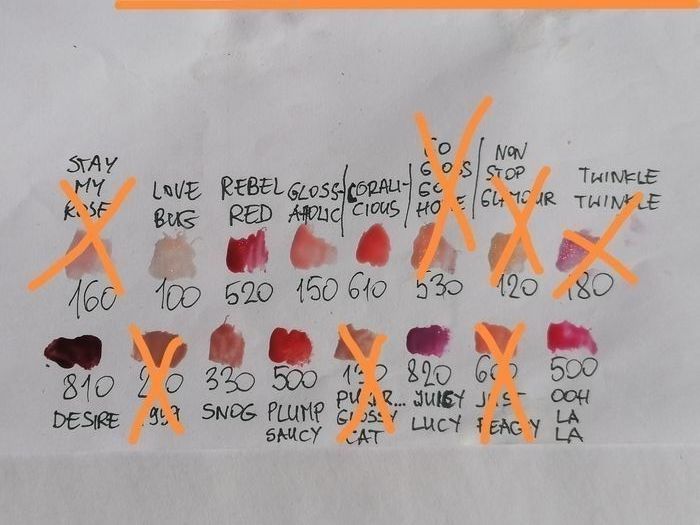 STAY
MY
ROSE
LOVE
BUG
REBEL
RED
GLOSS-
AHOLIC
CORALI-
CIOUS
GO
GLOSS
GO
HOME
NON
STOP
GLAMOUR
TWINKLE
TWINKLE
160 100 520 150 610 530 120 180
810
DESIRE
330
SNOG
500
PLUMP
SAUCY
130
PURRR...
GLOSSY
CAT
820
JUICY
LUCY
JUST
PEACHY
500
OOH
LA
LA